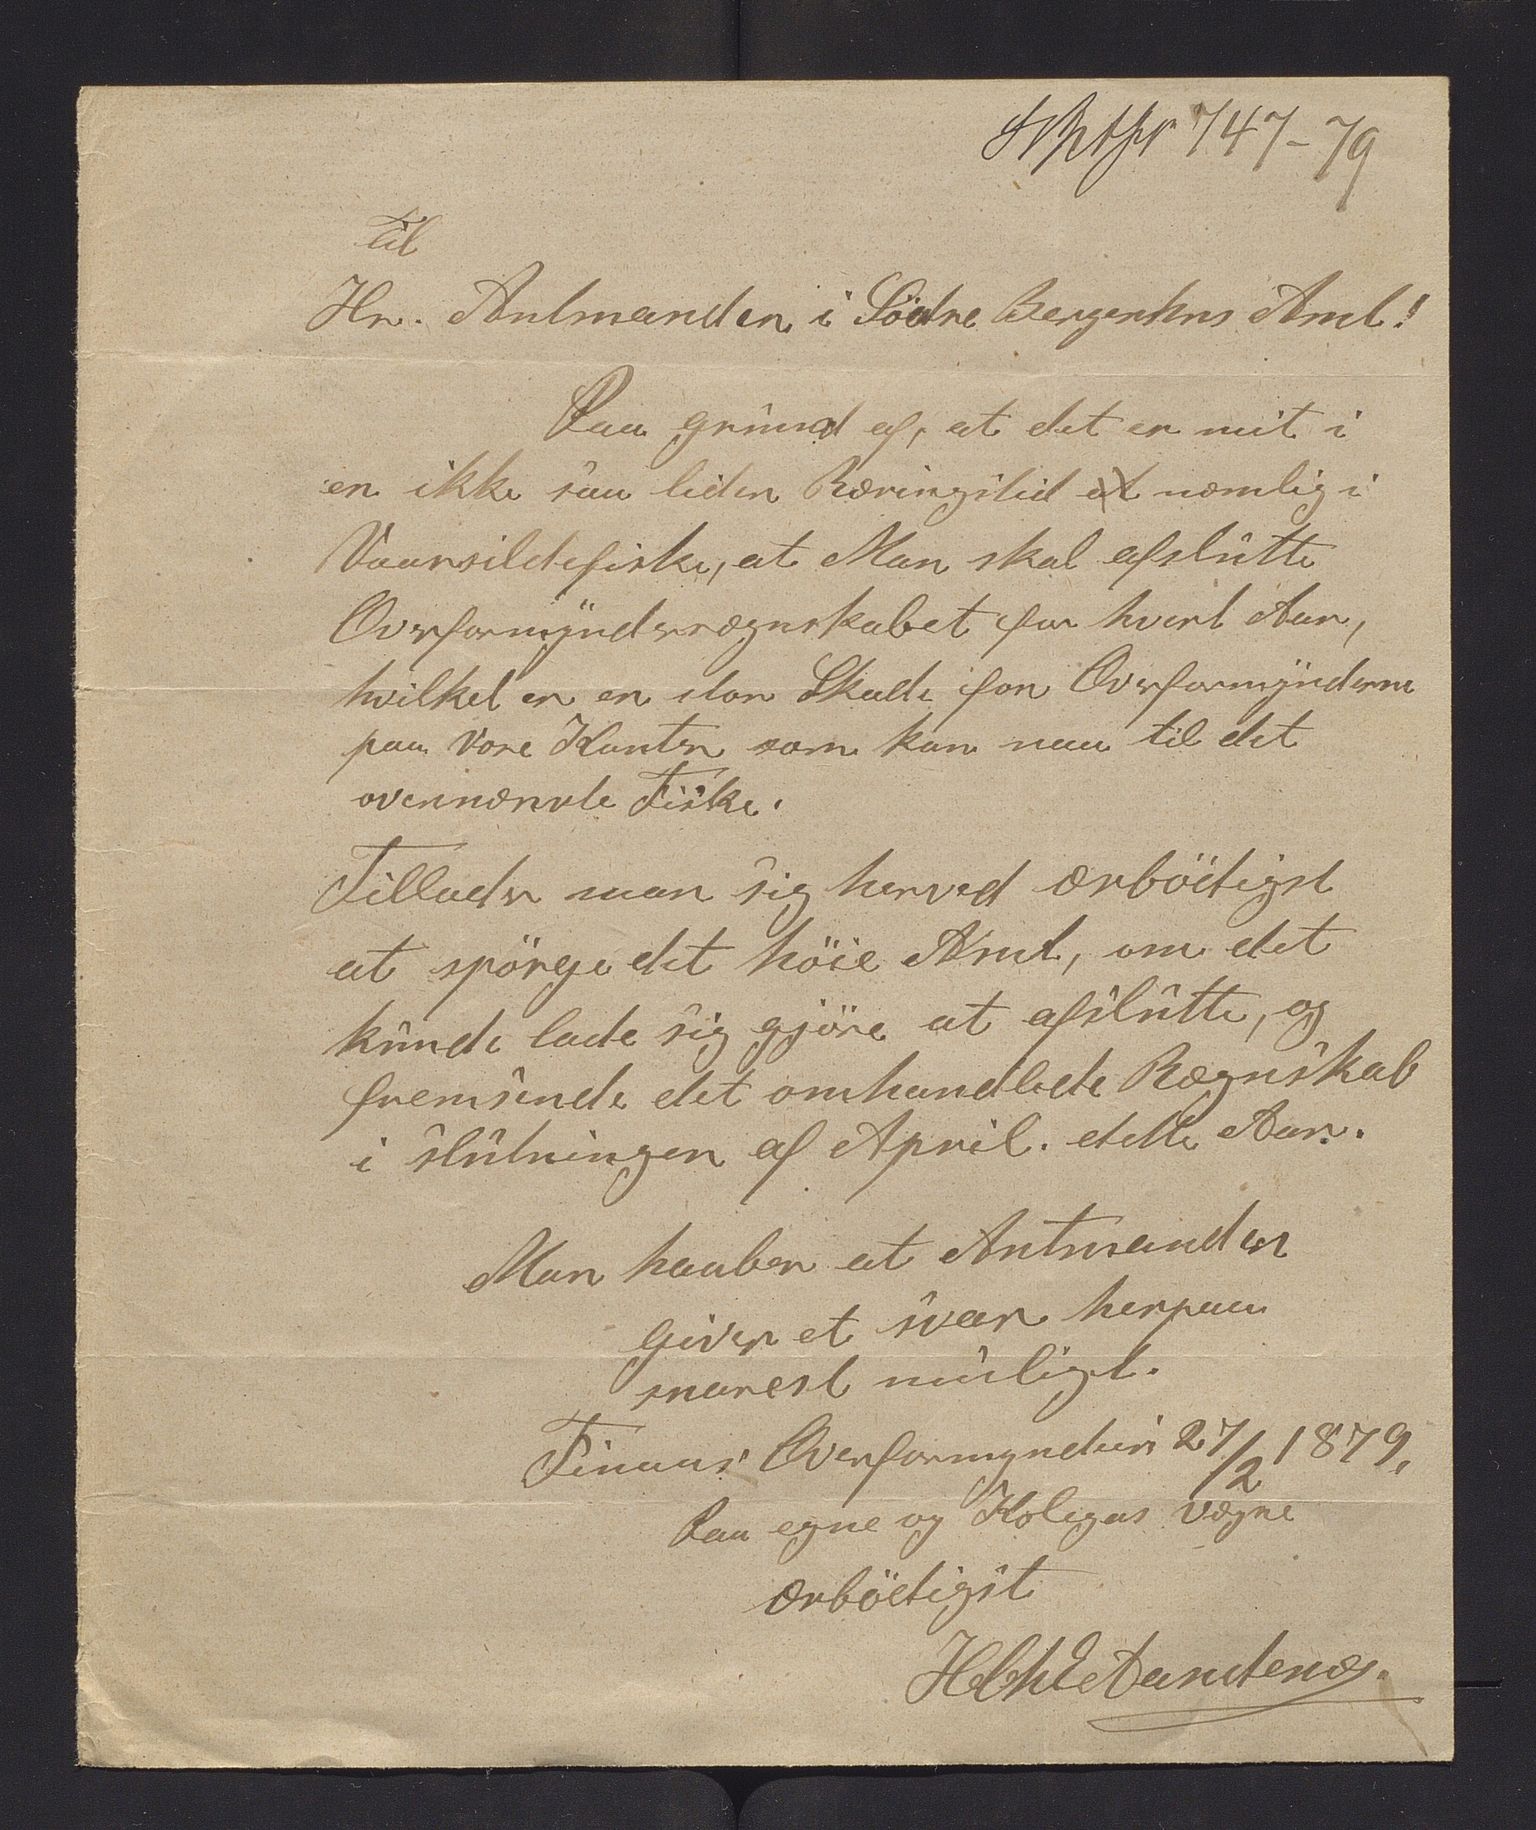 747-79
Til
Hr. Amtmanden i Södre Bergenhus Amt!
Paa grund af, at det er mit i
en ikke saa liden Næringstid at nemlig i
Vaarsildefiske, at Man skal afslutte
Overformynderregnskabet for hvert Aar,
hvilket er en stor Skade for Overformynderne
paa Vore Kanter som kan naa til det
ovennævnte Fiske.
Tillader man sig herved ærbödigst
at spörge det höie Amt, om det
kunde lade sig gjöre at afslutte, og
fremsende det omhandlede Regnskab
i slutningen af April. dette Aar.
Man haaber at Amtmanden
giver et svar herpaa
snarest muligt.
Finaas Overformynderi 27/2 1879,
Paa egne og Kolegas vegne
ærbödigst